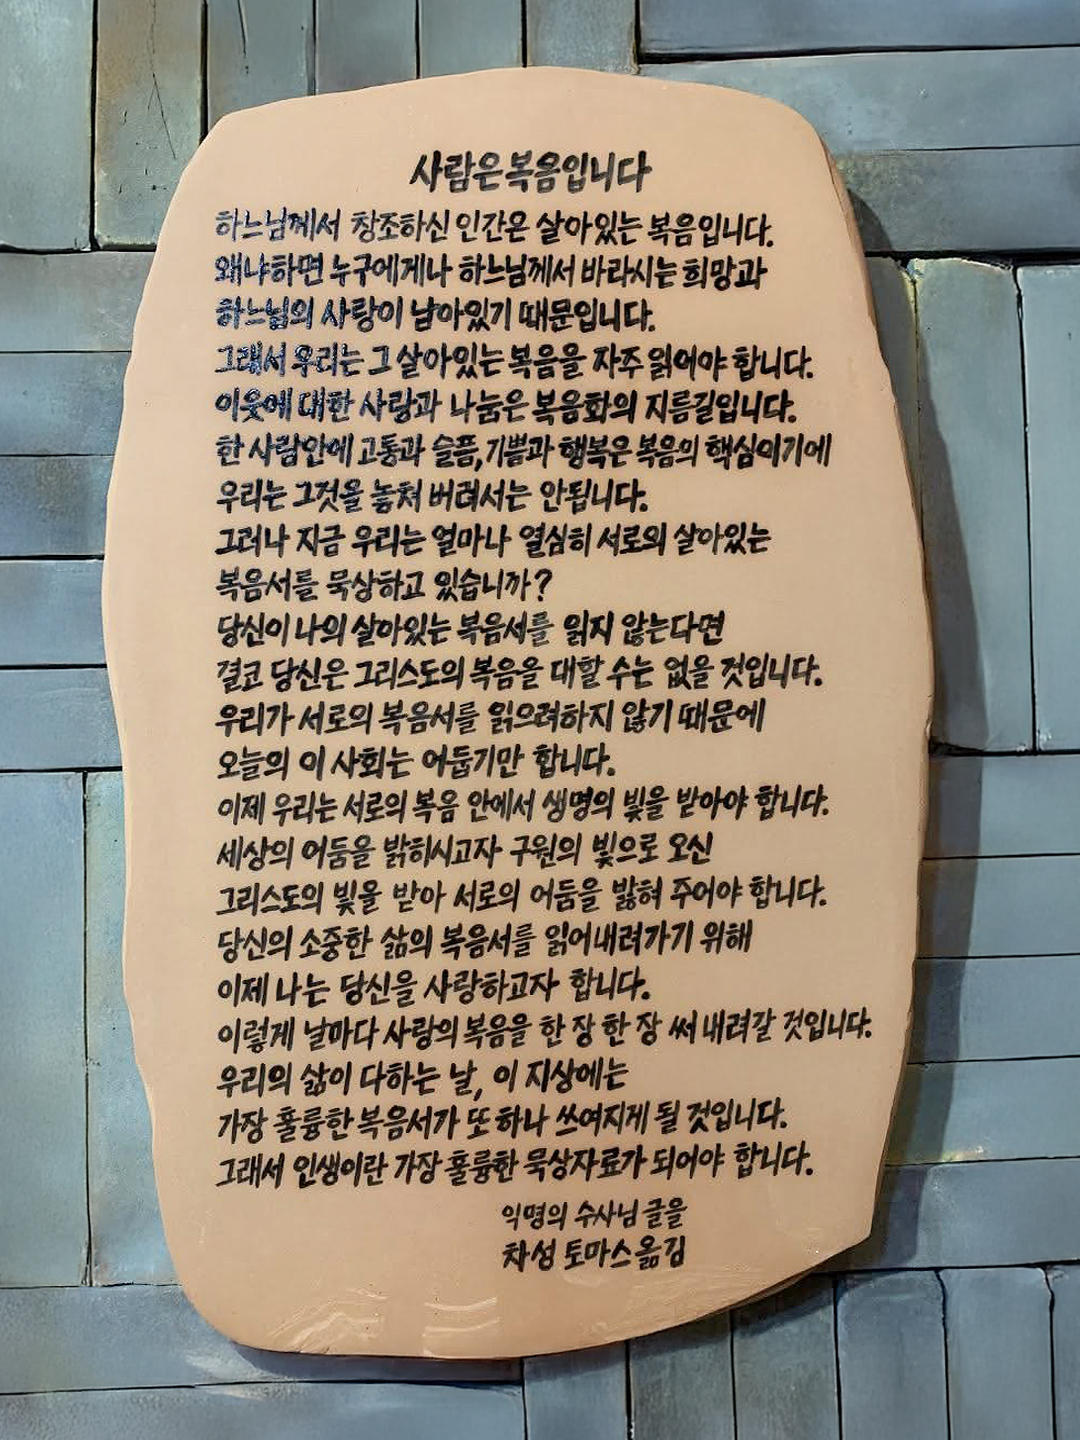 사람은 복음입니다
하느님께서 창조하신 인간은 살아있는 복음입니다.
왜냐하면 누구에게나 하느님께서 바라시는 희망과
하느님의 사랑이 남아있기 때문입니다.
그래서 우리는 그 살아있는 복음을 자주 읽어야 합니다.
이웃에 대한 사랑과 나눔은 복음화의 지름길입니다.
한 사람안에 고통과 슬픔, 기쁨과 행복은 복음의 핵심이기에
우리는 그것을 놓쳐 버려서는 안됩니다.
그러나 지금 우리는 얼마나 열심히 서로의 살아있는
복음서를 묵상하고 있습니까?
당신이 나의 살아있는 복음서를 읽지 않는다면
결코 당신은 그리스도의 복음을 대할 수는 없을 것입니다.
우리가 서로의 복음서를 읽으려하지 않기 때문에
오늘의 이 사회는 어둡기만 합니다.
이제 우리는 서로의 복음 안에서 생명의 빛을 받아야 합니다.
세상의 어둠을 밝히시고자 구원의 빛으로 오신
그리스도의 빛을 받아 서로의 어둠을 밝혀 주어야 합니다.
당신의 소중한 삶의 복음서를 읽어내려가기 위해
이제 나는 당신을 사랑하고자 합니다.
이렇게 날마다 사랑의 복음을 한 장 한 장 써 내려갈 것입니다.
우리의 삶이 다하는 날, 이 지상에는
가장 훌륭한 복음서가 또 하나 쓰여지게 될 것입니다.
그래서 인생이란 가장 훌륭한 묵상자료가 되어야 합니다.
익명의 수사님 글을
차성 토마스 옮김